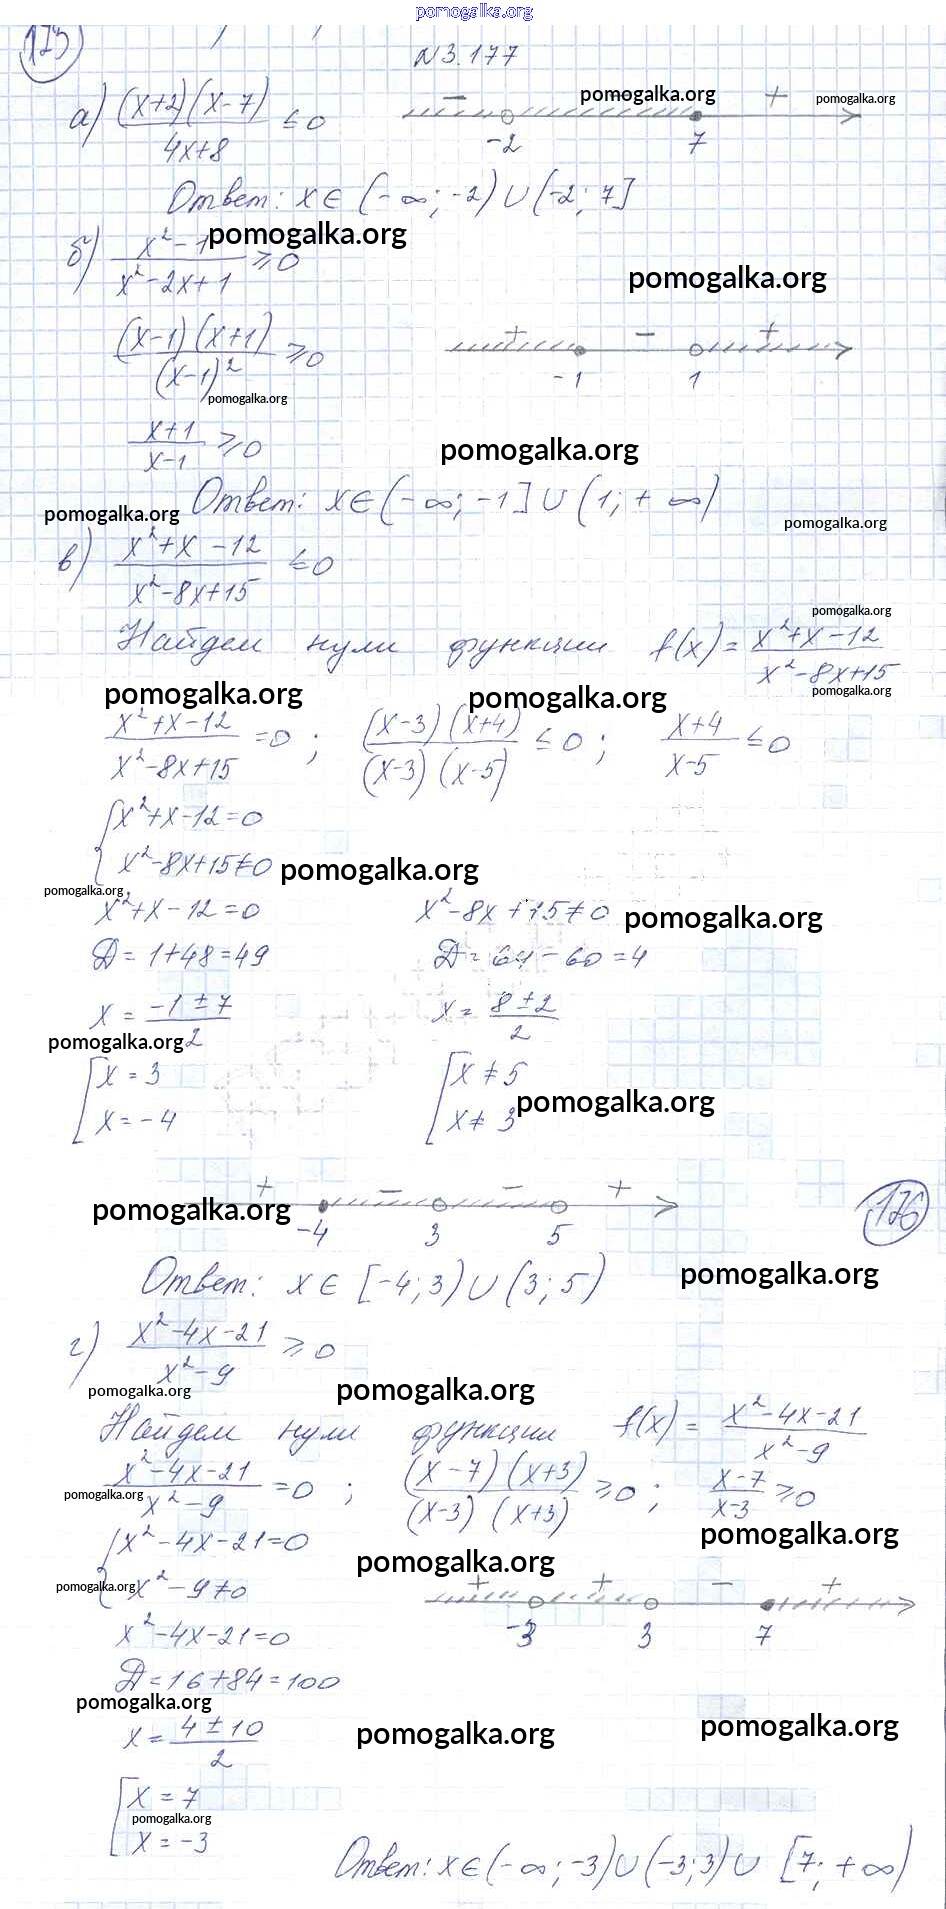 pomogalka.org
173
N3.177
а) (x+2)(x-7) / 4x+8 ≤ 0
- pomogalka.org + pomogalka.org
-2 7
Ответ: x ∈ (-∞; -2) ∪ (-2; 7]
б) x²-1 / x²-2x+1 ≥ 0 pomogalka.org
pomogalka.org
(x-1)(x+1) / (x-1)² ≥ 0
+ - +
-1 1
pomogalka.org
x+1 / x-1 ≥ 0
pomogalka.org
Ответ: x ∈ (-∞; -1] ∪ (1; +∞)
pomogalka.org pomogalka.org
в) x²+x-12 / x²-8x+15 ≤ 0
pomogalka.org
Найдем нули функции f(x) = x²+x-12 / x²-8x+15
pomogalka.org pomogalka.org pomogalka.org
x²+x-12 / x²-8x+15 = 0 ; (x-3)(x+4) / (x-3)(x-5) ≤ 0 ; x+4 / x-5 ≤ 0
{ x²+x-12=0
x²-8x+15≠0 pomogalka.org
pomogalka.org
x²+x-12=0 x²-8x+15≠0 pomogalka.org
Д=1+48=49 Д=64-60=4
x = -1±7 / 2 x = 8±2 / 2
pomogalka.org
[ x=3 [ x≠5
x=-4 x≠3 pomogalka.org
+ - - +
pomogalka.org
-4 3 5
176
Ответ: x ∈ [-4; 3) ∪ (3; 5)
pomogalka.org
г) x²-4x-21 / x²-9 ≥ 0
pomogalka.org pomogalka.org
Найдем нули функции f(x) = x²-4x-21 / x²-9
x²-4x-21 / x²-9 = 0 ; (x-7)(x+3) / (x-3)(x+3) ≥ 0 ; x-7 / x-3 ≥ 0
pomogalka.org
pomogalka.org
{ x²-4x-21=0
pomogalka.org
x²-9≠0
pomogalka.org
+ + - +
-3 3 7
x²-4x-21=0
Д=16+84=100
pomogalka.org
x = 4±10 / 2
pomogalka.org pomogalka.org
[ x=7
pomogalka.org
x=-3
Ответ: x ∈ (-∞; -3) ∪ (-3; 3) ∪ [7; +∞)